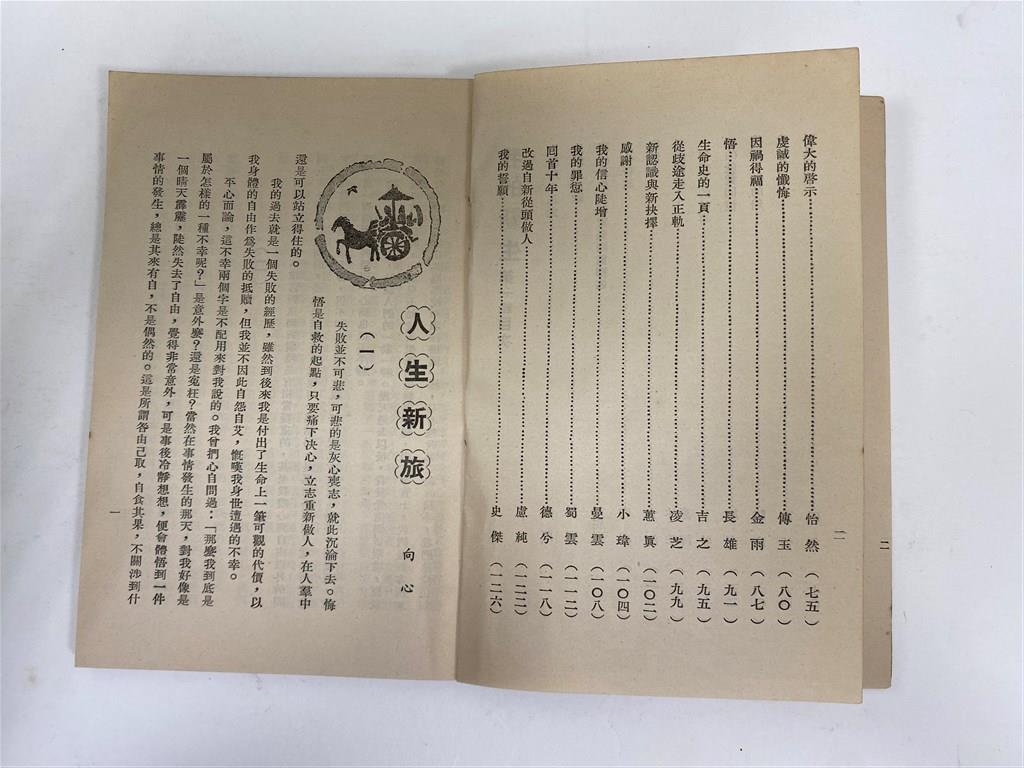 偉大的啓示……怡然(七五)
虔誠的懺悔……傳玉(八〇)
因禍得福……金雨(八七)
悟……長雄(九一)
生命史的一頁……吉之(九五)
從歧途走入正軌……凌芝(九九)
新認識與新抉擇……蕙眞(一〇二)
感謝……小瑋(一〇四)
我的信心陡增……曼雲(一〇八)
我的罪愆……蜀雲(一一二)
回首十年……德兮(一一八)
改過自新從頭做人……盧純(一二二)
我的誓願……史傑(一二六)
二
二
人生新旅
向心
(一)
失敗並不可悲，可悲的是灰心喪志，就此沉淪下去。悔
悟是自救的起點，只要痛下決心，立志重新做人，在人羣中
還是可以站立得住的。
我的過去就是一個失敗的經歷，雖然到後來我是付出了生命上一筆可觀的代價，以
我身體的自由作爲失敗的抵贖，但我並不因此自怨自艾，慨嘆我身世遭遇的不幸。
平心而論，這不幸兩個字是不配用來對我說的。我曾捫心自問過：「那麼我到底是
屬於怎樣的一種不幸呢？」是意外麼？還是寃枉？當然在事情發生的那天，對我好像是
一個晴天霹靂，陡然失去了自由，覺得非常意外，可是事後冷靜想想，便會體悟到一件
事情的發生，總是其來有自，不是偶然的。這是所謂咎由己取，自食其果，不關涉到什
一